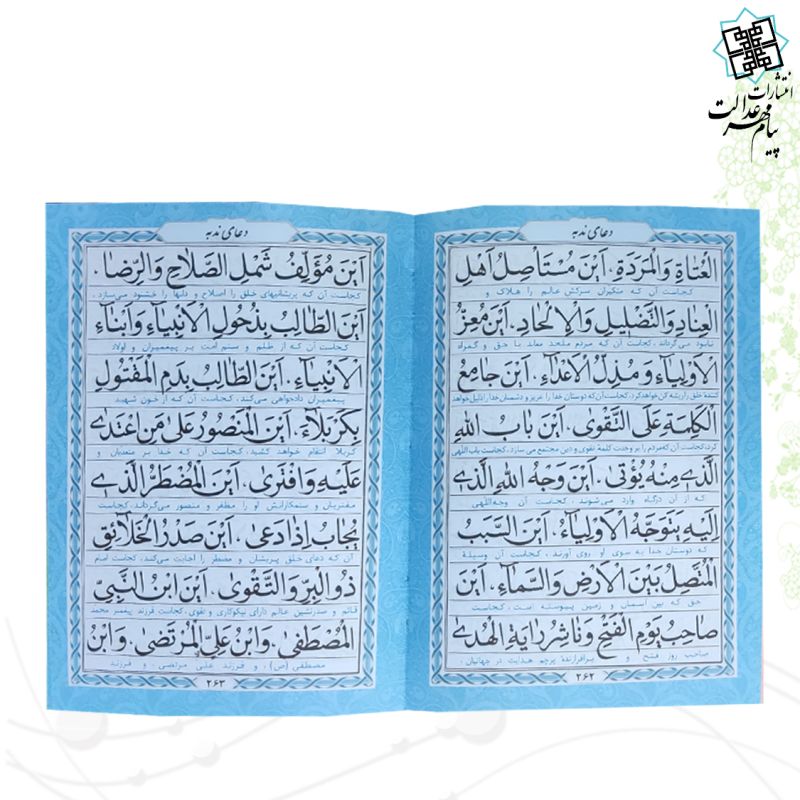 انتشارات
پیام مهر عدالت
دعای ندبه
الْعُتاةِ وَالْمَرَدَةِ، اَيْنَ مُسْتَاْصِلُ اَهْلِ
کجاست آن که متکبران سرکش عالم را هلاک و
الْعِنادِ وَالتَّضْليلِ وَالْاِلْحادِ، اَيْنَ مُعِزُّ
نابود می‌گرداند، کجاست آن که مردم ملحد معاند با حق و گمراه
الْاَوْلِياءِ وَ مُذِلُّ الْاَعْداءِ، اَيْنَ جامِعُ
کننده خلق را ریشه کن خواهد کرد، کجاست آن که دوستان خدا را عزیز و دشمنان خدا را ذلیل خواهد
الْكَلِمَةِ عَلَى التَّقْوى، اَيْنَ بابُ اللهِ
کرد، کجاست آن که مردم را بر وحدت کلمهٔ تقوی و دین مجتمع می سازد، کجاست باب اللهی
الَّذى مِنْهُ يُؤْتى، اَيْنَ وَجْهُ اللهِ الَّذى
که از آن درگاه وارد می‌شوند، کجاست آن وجه‌اللهی
اِلَيْهِ يَتَوَجَّهُ الْاَوْلِياءُ، اَيْنَ السَّبَبُ
که دوستان خدا به سوی او روی آورند، کجاست آن وسیلهٔ
الْمُتَّصِلُ بَيْنَ الْاَرْضِ وَالسَّماءِ، اَيْنَ
حق که بین آسمان و زمین پیوسته است، کجاست
صاحِبُ يَوْمِ الْفَتْحِ وَ ناشِرُ رايَةِ الْهُدى
صاحب روز فتح و برافرازندهٔ پرچم هدایت در جهانیان،
۲۶۲
دعای ندبه
اَيْنَ مُؤَلِّفُ شَمْلِ الصَّلاحِ وَالرِّضا،
کجاست آن که پریشانیهای خلق را اصلاح و دلها را خشنود می‌سازد،
اَيْنَ الطّالِبُ بِذُحُولِ الْاَنْبِياءِ وَ اَبْناءِ
کجاست آن که از ظلم و ستم امت بر پیغمبران و اولاد
الْاَنْبِياءِ، اَيْنَ الطّالِبُ بِدَمِ الْمَقْتُولِ
پیغمبران دادخواهی می‌کند، کجاست آن که از خون شهید
بِكَرْبَلاءَ، اَيْنَ الْمَنْصُورُ عَلى مَنِ اعْتَدى
کربلا انتقام خواهد کشید، کجاست آن که خدا بر متعدیان و
عَلَيْهِ وَافْتَرى، اَيْنَ الْمُضْطَرُّ الَّذى
مفتریان و ستمکارانش او را مظفر و منصور می‌گرداند، کجاست
يُجابُ اِذا دَعى، اَيْنَ صَدْرُ الْخَلائِقِ
آن که دعای خلق پریشان و مضطر را اجابت می‌کند، کجاست امام
ذُوالْبِرِّ وَالتَّقْوى، اَيْنَ ابْنُ النَّبِىِّ
قائم و صدرنشین عالم دارای نیکوکاری و تقوی، کجاست فرزند پیغمبر محمد
الْمُصْطَفى، وَابْنُ عَلِىٍّ الْمُرْتَضى، وَابْنُ
مصطفی (ص)، و فرزند علی مرتضی، و فرزند
۲۶۳